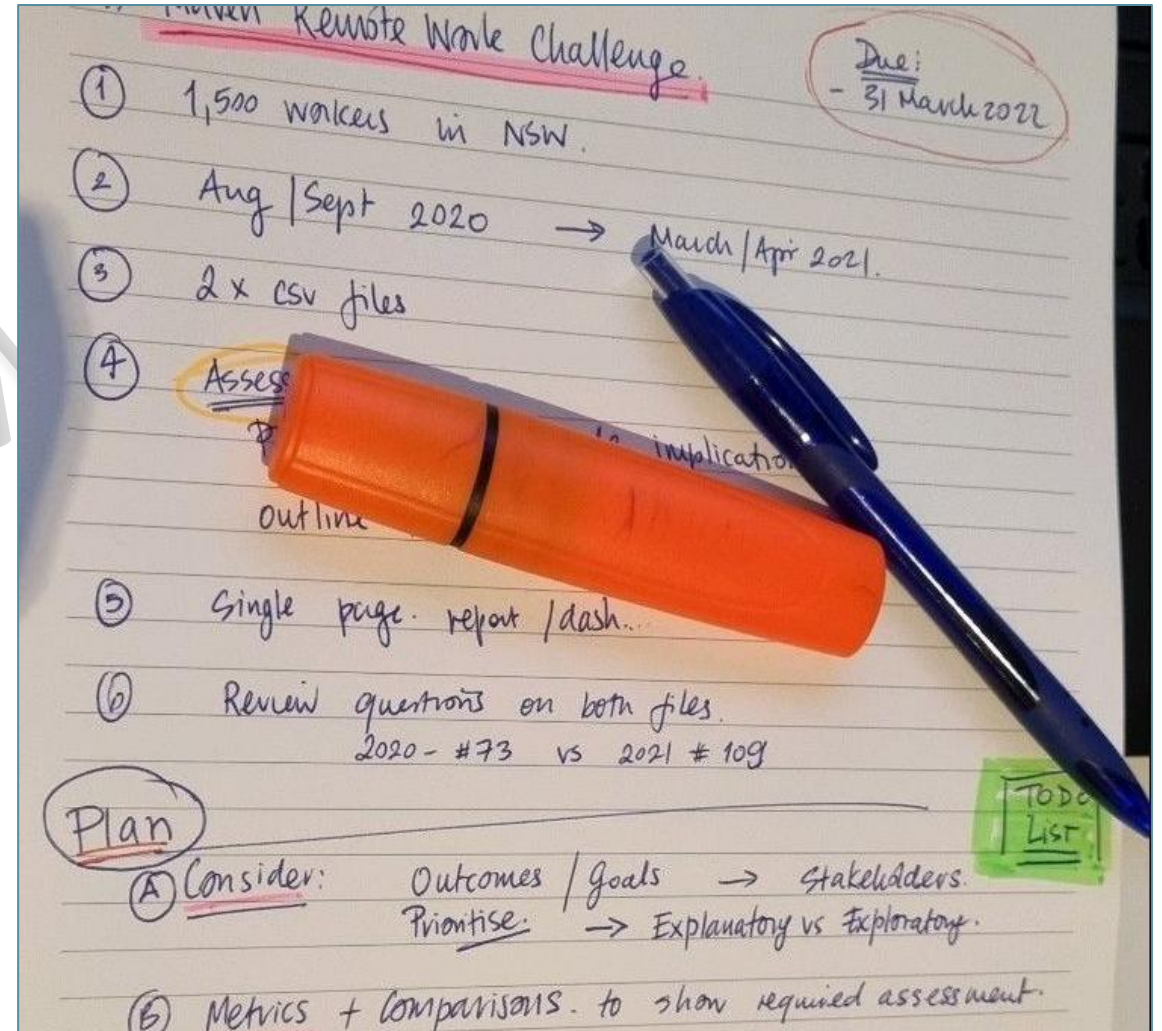 Maven Remote Work Challenge.
Due:
- 31 March 2022
① 1,500 workers in NSW.
② Aug | Sept 2020 → March | Apr 2021.
③ 2 x csv files
④ Assess
implication
outline
⑤ Single page. report / dash...
⑥ Review questions on both files.
2020 - #73 vs 2021 # 109
Plan
TODO
LIST
Ⓐ Consider: Outcomes / Goals → Stakeholders.
Prioritise. → Explanatory vs Exploratory.
Ⓑ Metrics + Comparisons. to show required assessment.